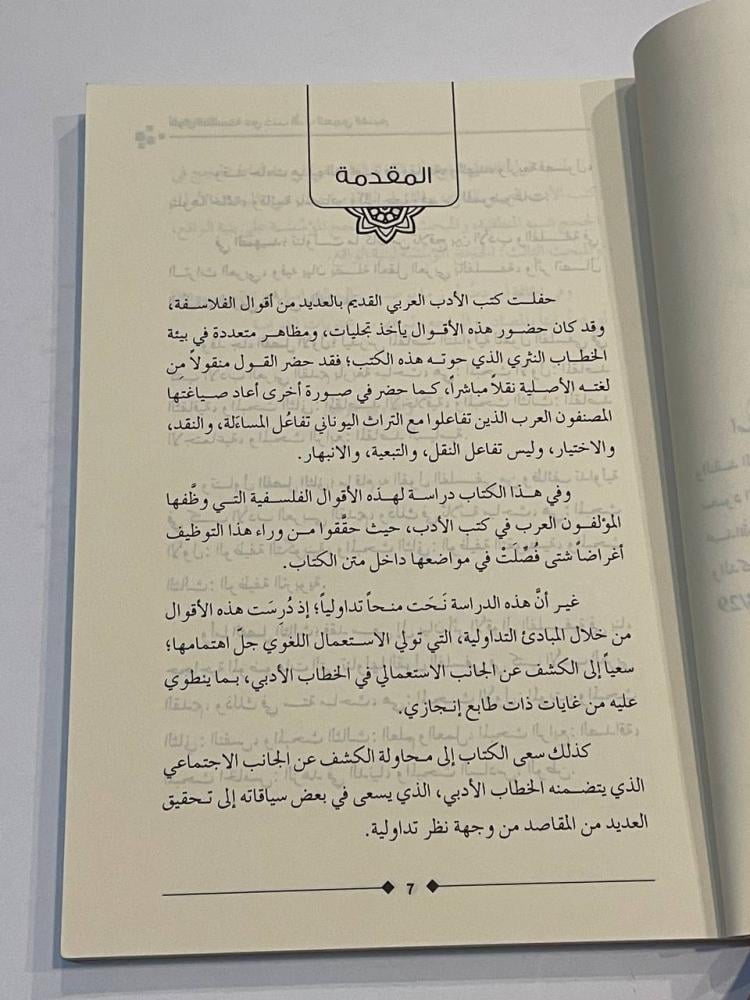 المقدمة
حفلت كتب الأدب العربي القديم بالعديد من أقوال الفلاسفة،
وقد كان حضور هذه الأقوال يأخذ تجليات، ومظاهر متعددة في بيئة
الخطاب النثري الذي حوته هذه الكتب؛ فقد حضر القول منقولاً مِن
لغته الأصلية نقلاً مباشراً، كما حضر في صورة أخرى أعاد صياغتَها
المصنفون العرب الذين تفاعلوا مع التراث اليوناني تفاعُل المساءَلة، والنقد،
والاختيار، وليس تفاعل النقل، والتبعية، والانبهار.
وفي هذا الكتاب دراسة لهذه الأقوال الفلسفية التي وظَّفها
المؤلفون العرب في كتب الأدب، حيث حقَّقوا من وراء هذا التوظيف
أغراضاً شتى فُصِّلَتْ في مواضعها داخل متن الكتاب.
غير أنَّ هذه الدراسة نَحَت منحاً تداولياً؛ إذ دُرِسَت هذه الأقوال
من خلال المبادئ التداولية، التي تولي الاستعمال اللغوي جلَّ اهتمامها؛
سعياً إلى الكشف عن الجانب الاستعمالي في الخطاب الأدبي، بما ينطوي
عليه من غايات ذات طابع إنجازي.
كذلك سعى الكتاب إلى محاولة الكشف عن الجانب الاجتماعي
الذي يتضمنه الخطاب الأدبي، الذي يسعى في بعض سياقاته إلى تحقيق
العديد من المقاصد من وجهة نظر تداولية.
7